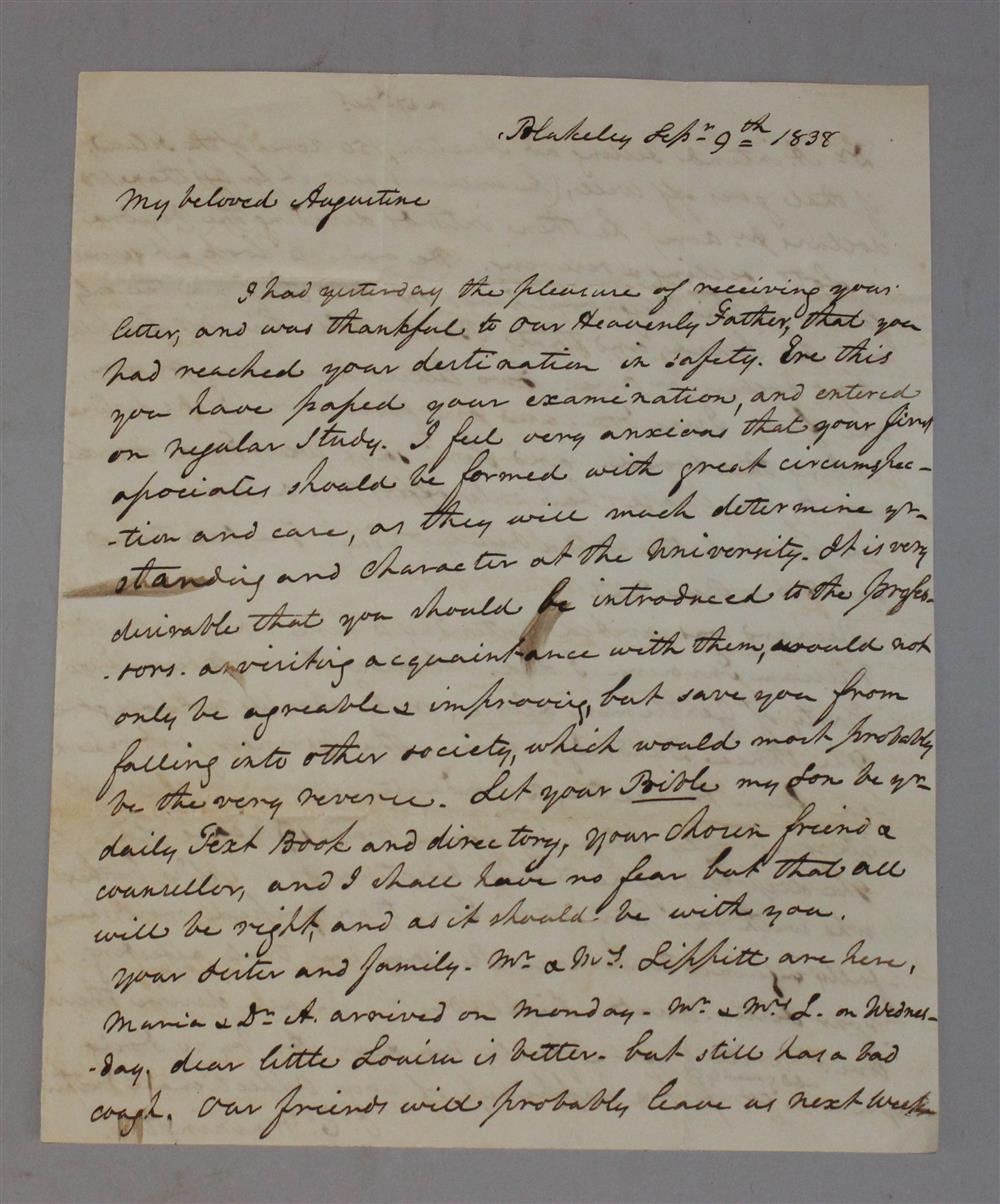 Blakeley Sepr 9th 1838
My beloved Augustine
I had yesterday the pleasure of receiving your
letter, and was thankful to our Heavenly Father, that you
had reached your destination in safety. Ere this
you have passed your examination, and entered
on regular study. I feel very anxious that your first
associates should be formed with great circumspec-
-tion and care, as they will much determine yr
standing and character at the University. It is very
desirable that you should be introduced to the profes-
-sors. a visiting acquaintance with them, would not
only be agreable & improving, but save you from
falling into other society, which would most probably
be the very reverse. Let your Bible my son be yr
daily Text Book and directory, your chosen friend &
counsellor, and I shall have no fear but that all
will be right, and as it should be with you.
your sister and family. Mr & Mrs. Lippitt are here,
Maria & Dr A. arrived on Monday. Mr & Mrs L. on Wednes-
-day. dear little Louisa is better. but still has a bad
cough. Our friends will probably leave us next week